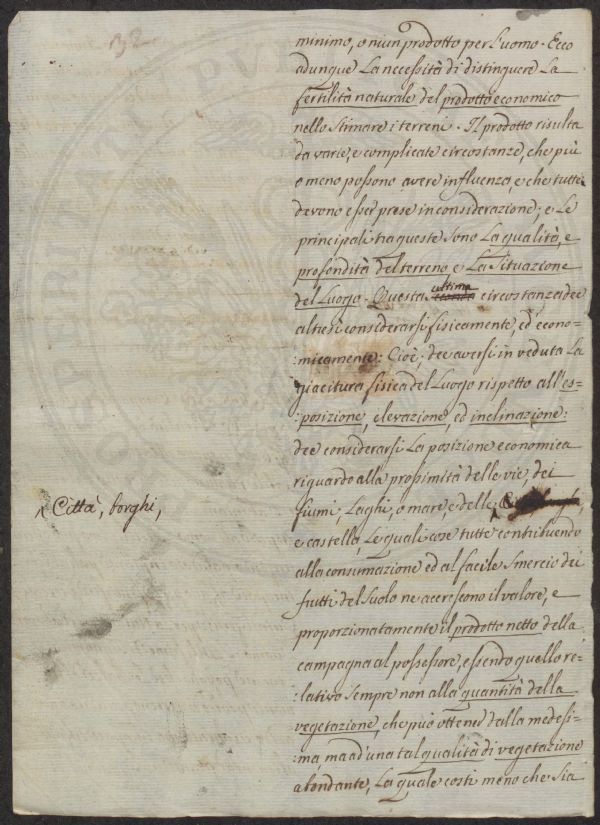 32
minimo, o niun prodotto per l'uomo. Ecco
adunque La necessità di distinguere La
fertilità naturale del prodotto economico
nello Stimare i terreni. Il prodotto risulta
da varie, e complicate circostanze, che più
o meno possono avere influenza, e che tutte
devono esser prese in considerazione; e Le
principali tra queste sono La qualità, e
profondità del terreno, e La Situazione
del Luogo. Questa ultima circostanza dee
altresì considerarsi fisicamente, ed econo-
:micamente: Cioè, dee aversi in veduta La
giacitura fisica del Luogo rispetto all'es=
:posizione, elevazione, ed inclinazione:
dee considerarsi La posizione economica
riguardo alla prossimità delle vie, dei
fiumi, Laghi, o mare, e delle
Città, borghi,
e castella, Le quali cose tutte contribuendo
alla consumazione ed al facile Smercio dei
frutti del Suolo ne accrescono il valore, e
proporzionatamente il prodotto netto della
campagna al possessore, essendo quello re=
:lativo Sempre non alla quantità della
vegetazione, che può ottenersi dalla medesi=
:ma, ma ad una tal qualità di vegetazione
abondante, La quale costi meno che Sia